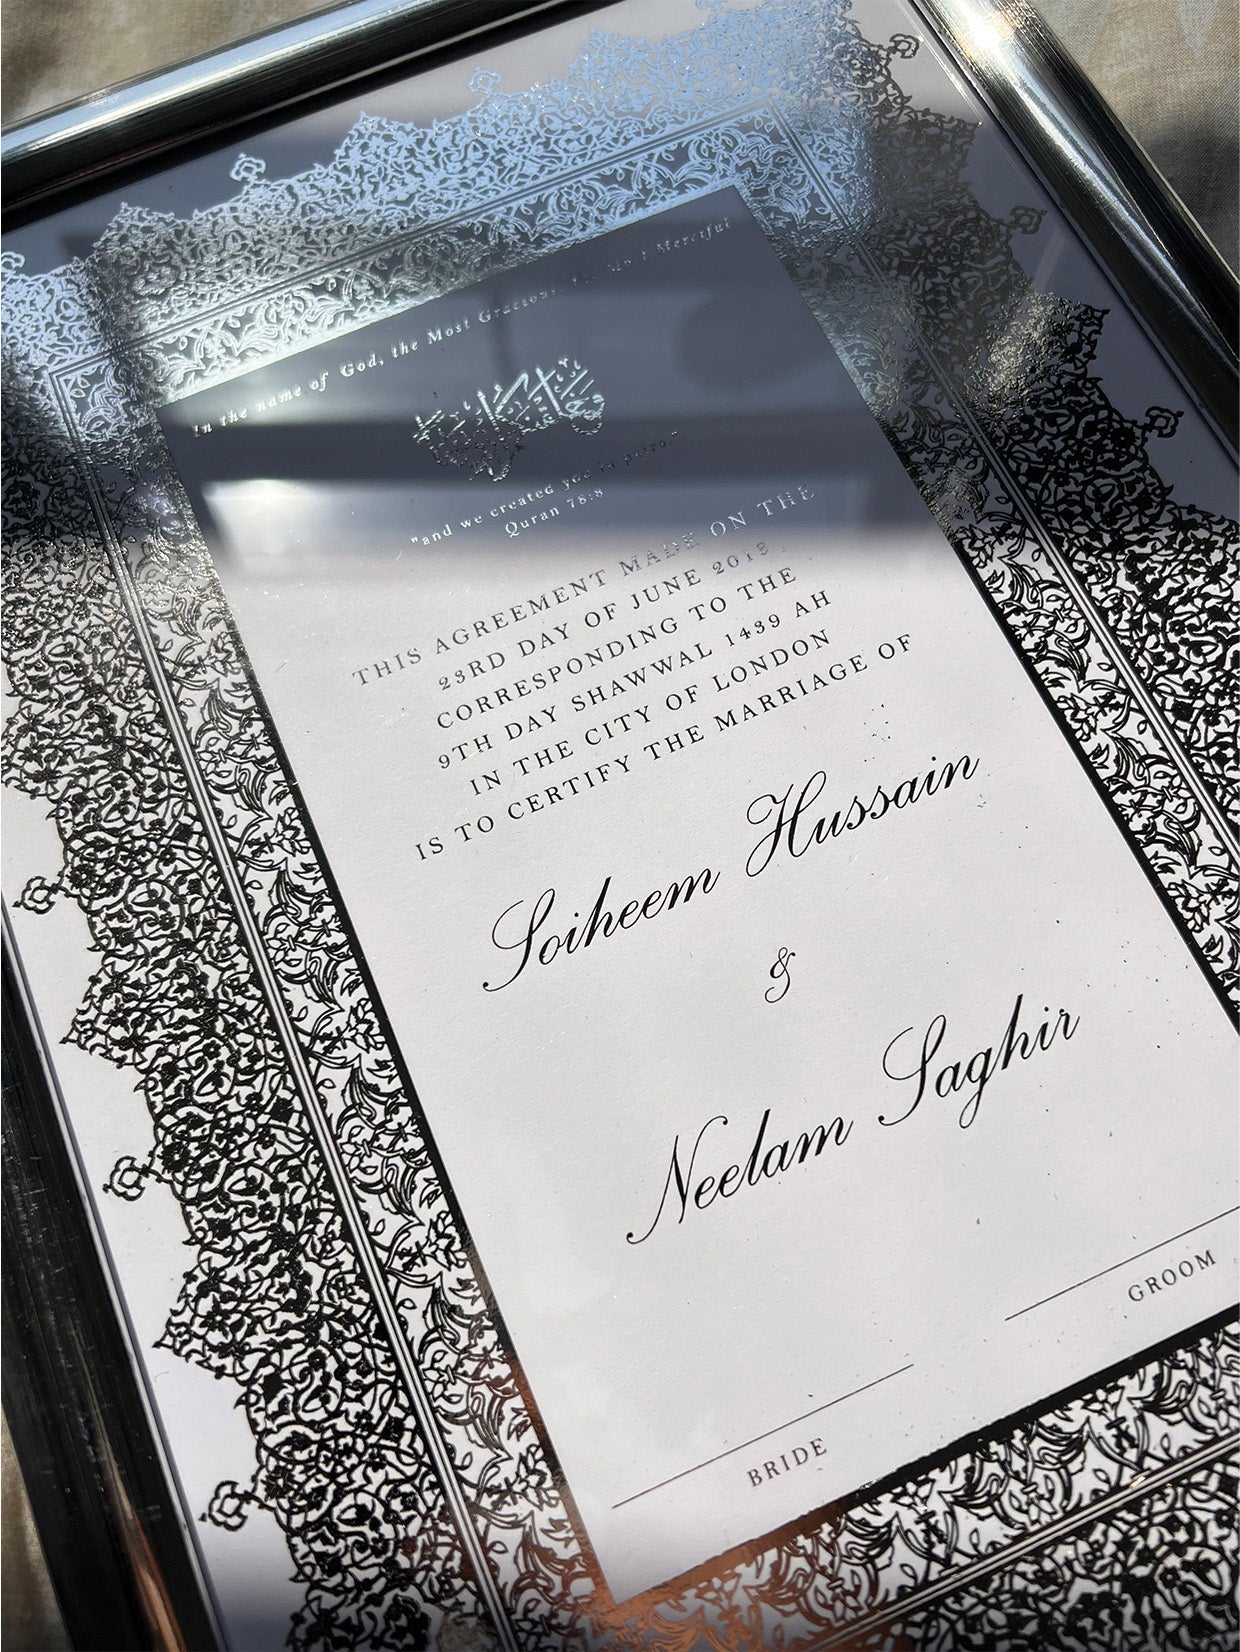 In the name of God, the Most Gracious, the Most Merciful
"and we created you in pairs."
Quran 78:8
THIS AGREEMENT MADE ON THE
23RD DAY OF JUNE 2018
CORRESPONDING TO THE
9TH DAY SHAWWAL 1439 AH
IN THE CITY OF LONDON
IS TO CERTIFY THE MARRIAGE OF
Soiheem Hussain
&
Neelam Saghir
BRIDE
GROOM